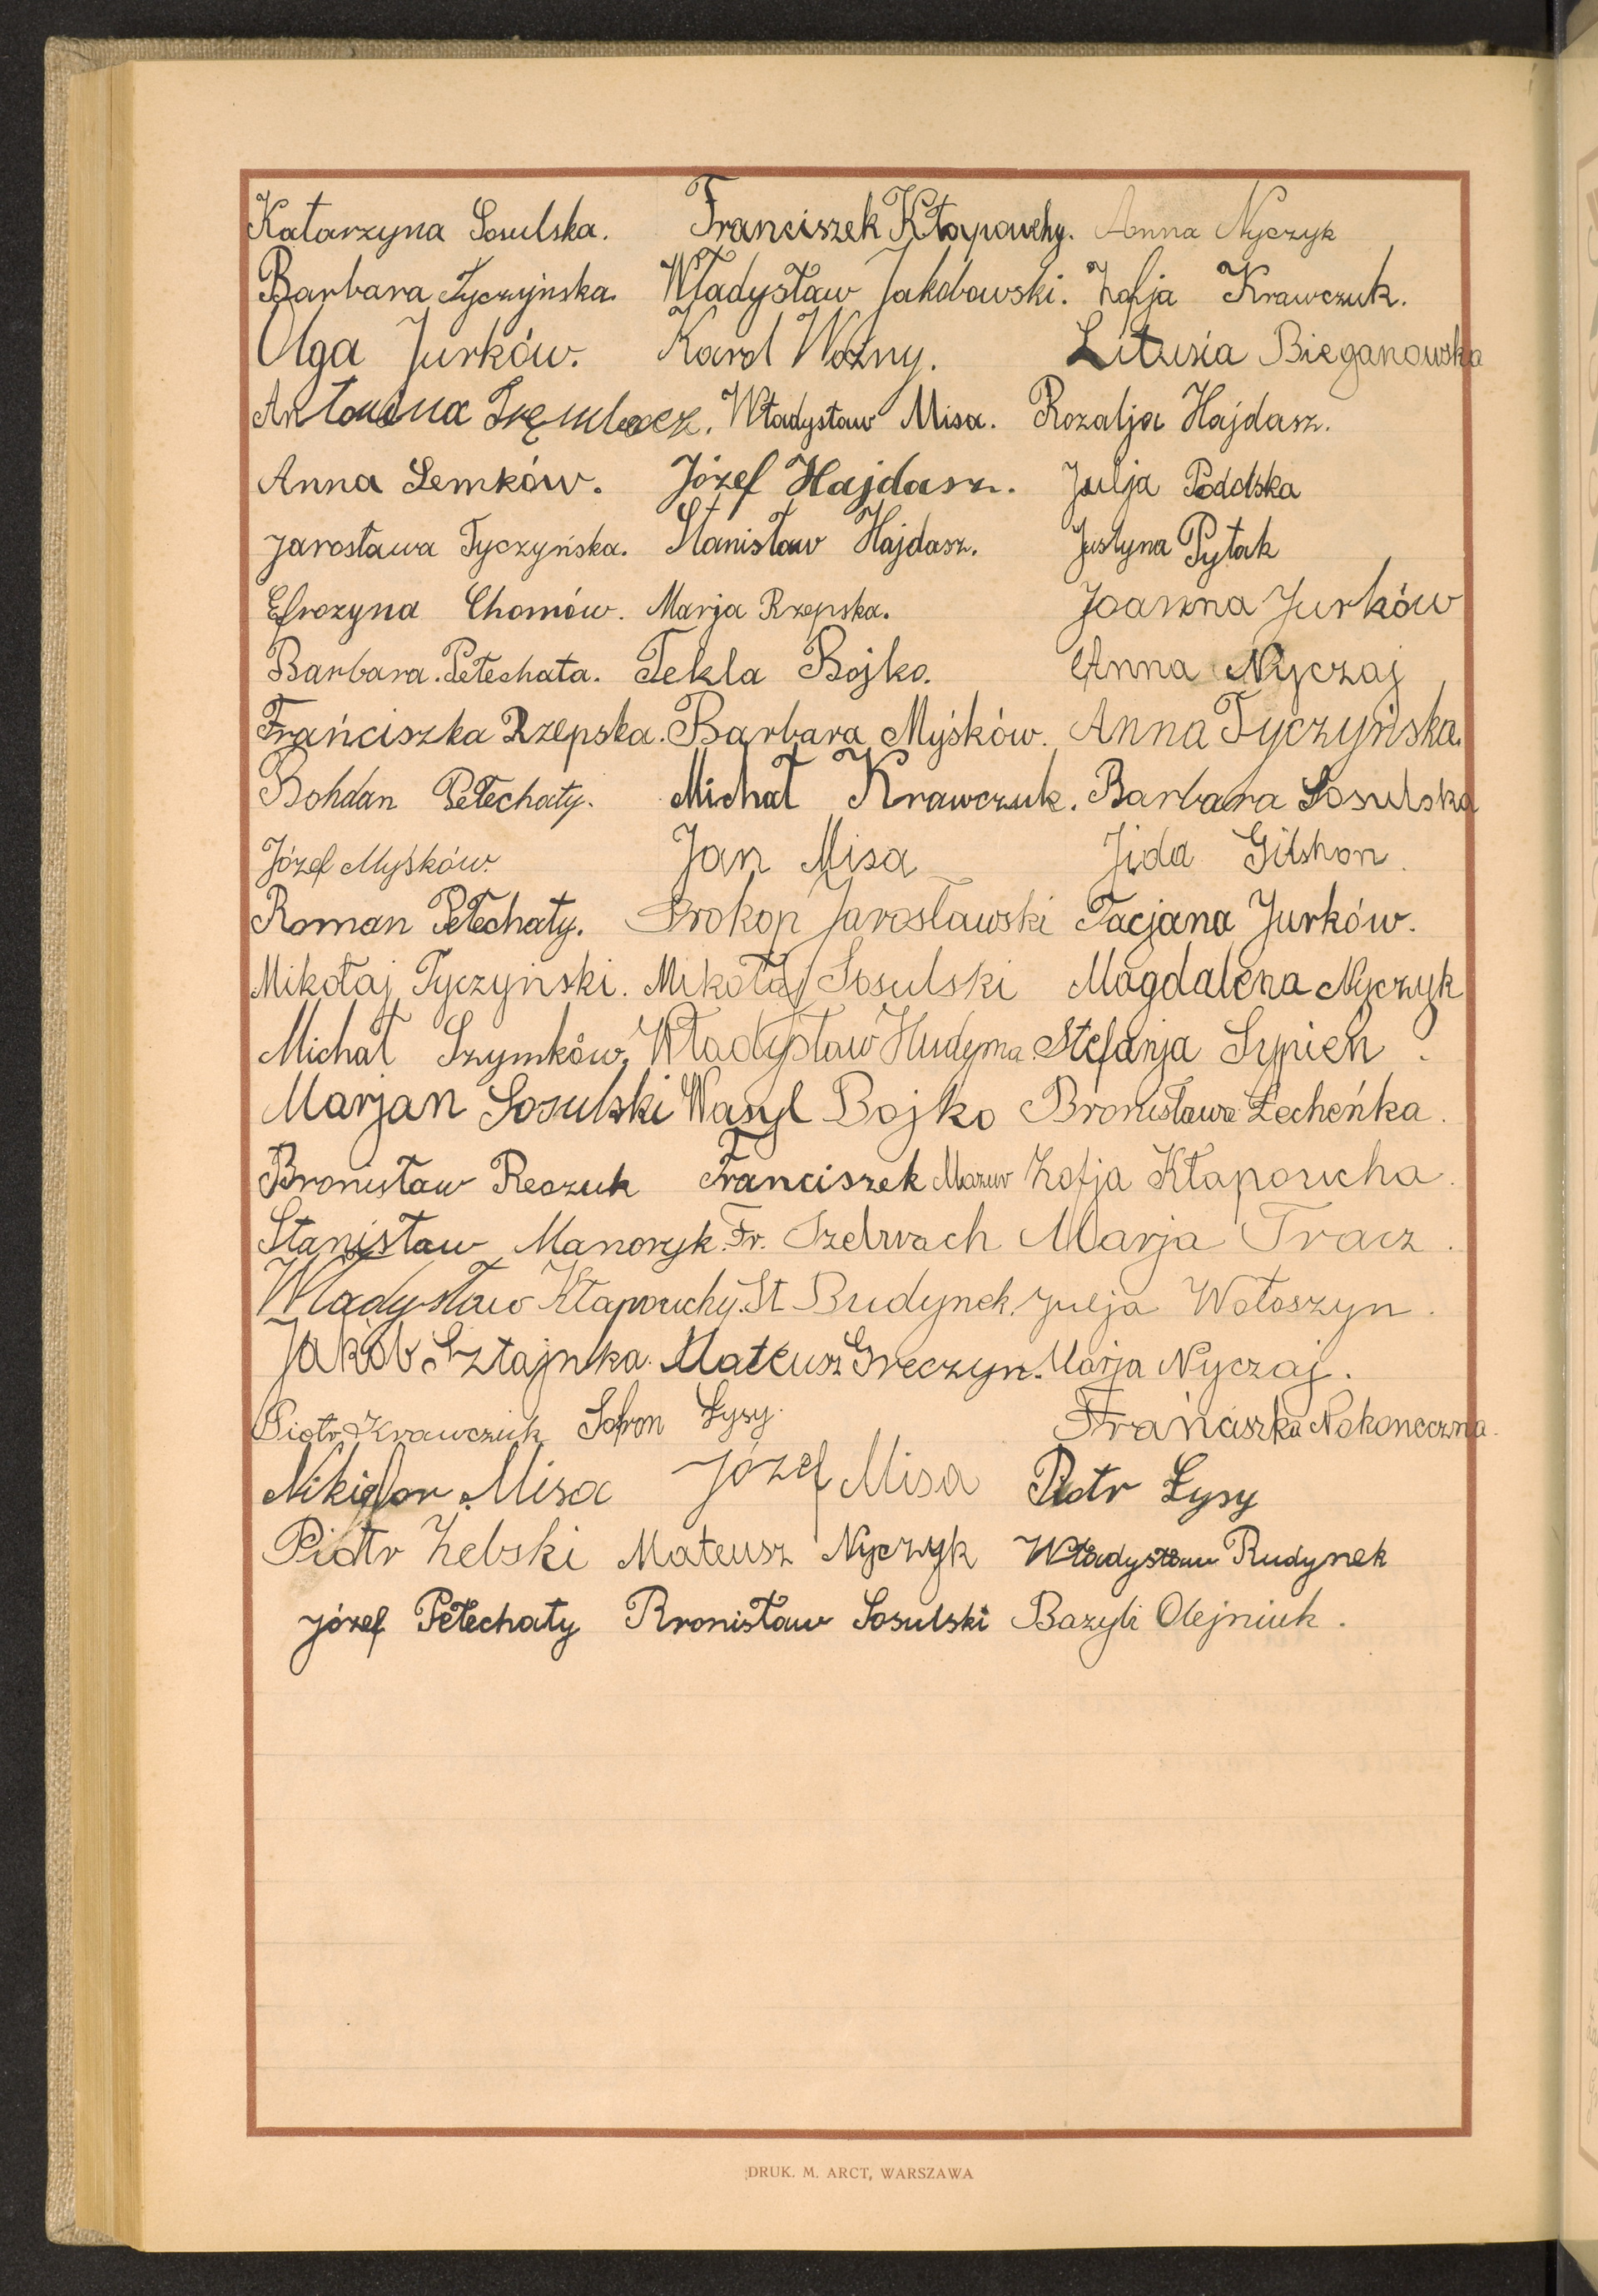 Katarzyna Sosulska. Franciszek Kłapouchy. Anna Nyczyk
Barbara Tyczyńska. Władysław Jakóbowski. Zofja Krawczuk.
Olga Jurków. Karol Woźny. Litusia Bieganowska
Antonina Trębacz. Władysław Misa. Rozalja Hajdasz.
Anna Semków. Józef Hajdasz. Julja Podolska
Jarosława Tyczyńska. Stanisław Hajdasz. Justyna Pytak
Efrozyna Chomów. Marja Rzepska. Joanna Jurków
Barbara. Petechata. Tekla Bojko. Anna Nyczaj
Frańciszka Rzepska. Barbara Myśków. Anna Tyczyńska.
Bohdan Petechaty. Michał Krawczuk. Barbara Sosulska
Józef Myśków. Jan Misa Jida Gitshon.
Roman Petechaty. Prokop Jarosławski Tacjana Jurków.
Mikołaj Tyczyński. Mikołaj Sosulski Magdalena Nyczyk
Michał Szymków. Władysław Hudyma. Stefanja Sypień.
Marjan Sosulski Wasyl Bojko Bronisława Łecheńka.
Bronisław Reozuk Franciszek Mazur Zofja Kłapoucha.
Stanisław Manoryk. Fr. Szelwach Marja Tracz.
Władysław Kłapouchy. St Budynek. Julja Wołoszyn.
Jakób Sztajnka. Mateusz Greczyn. Marja Nyczaj.
Piotr Krawczuk Sofron Łysy. Frańciszka Nakoneczna.
Nikifor Misa Józef Misa Piotr Łysy
Piotr Zelski Mateusz Nyczyk Władysław Rudynek
Józef Petechaty Bronisław Sosulski Bazyli Olejniuk.
DRUK. M. ARCT, WARSZAWA